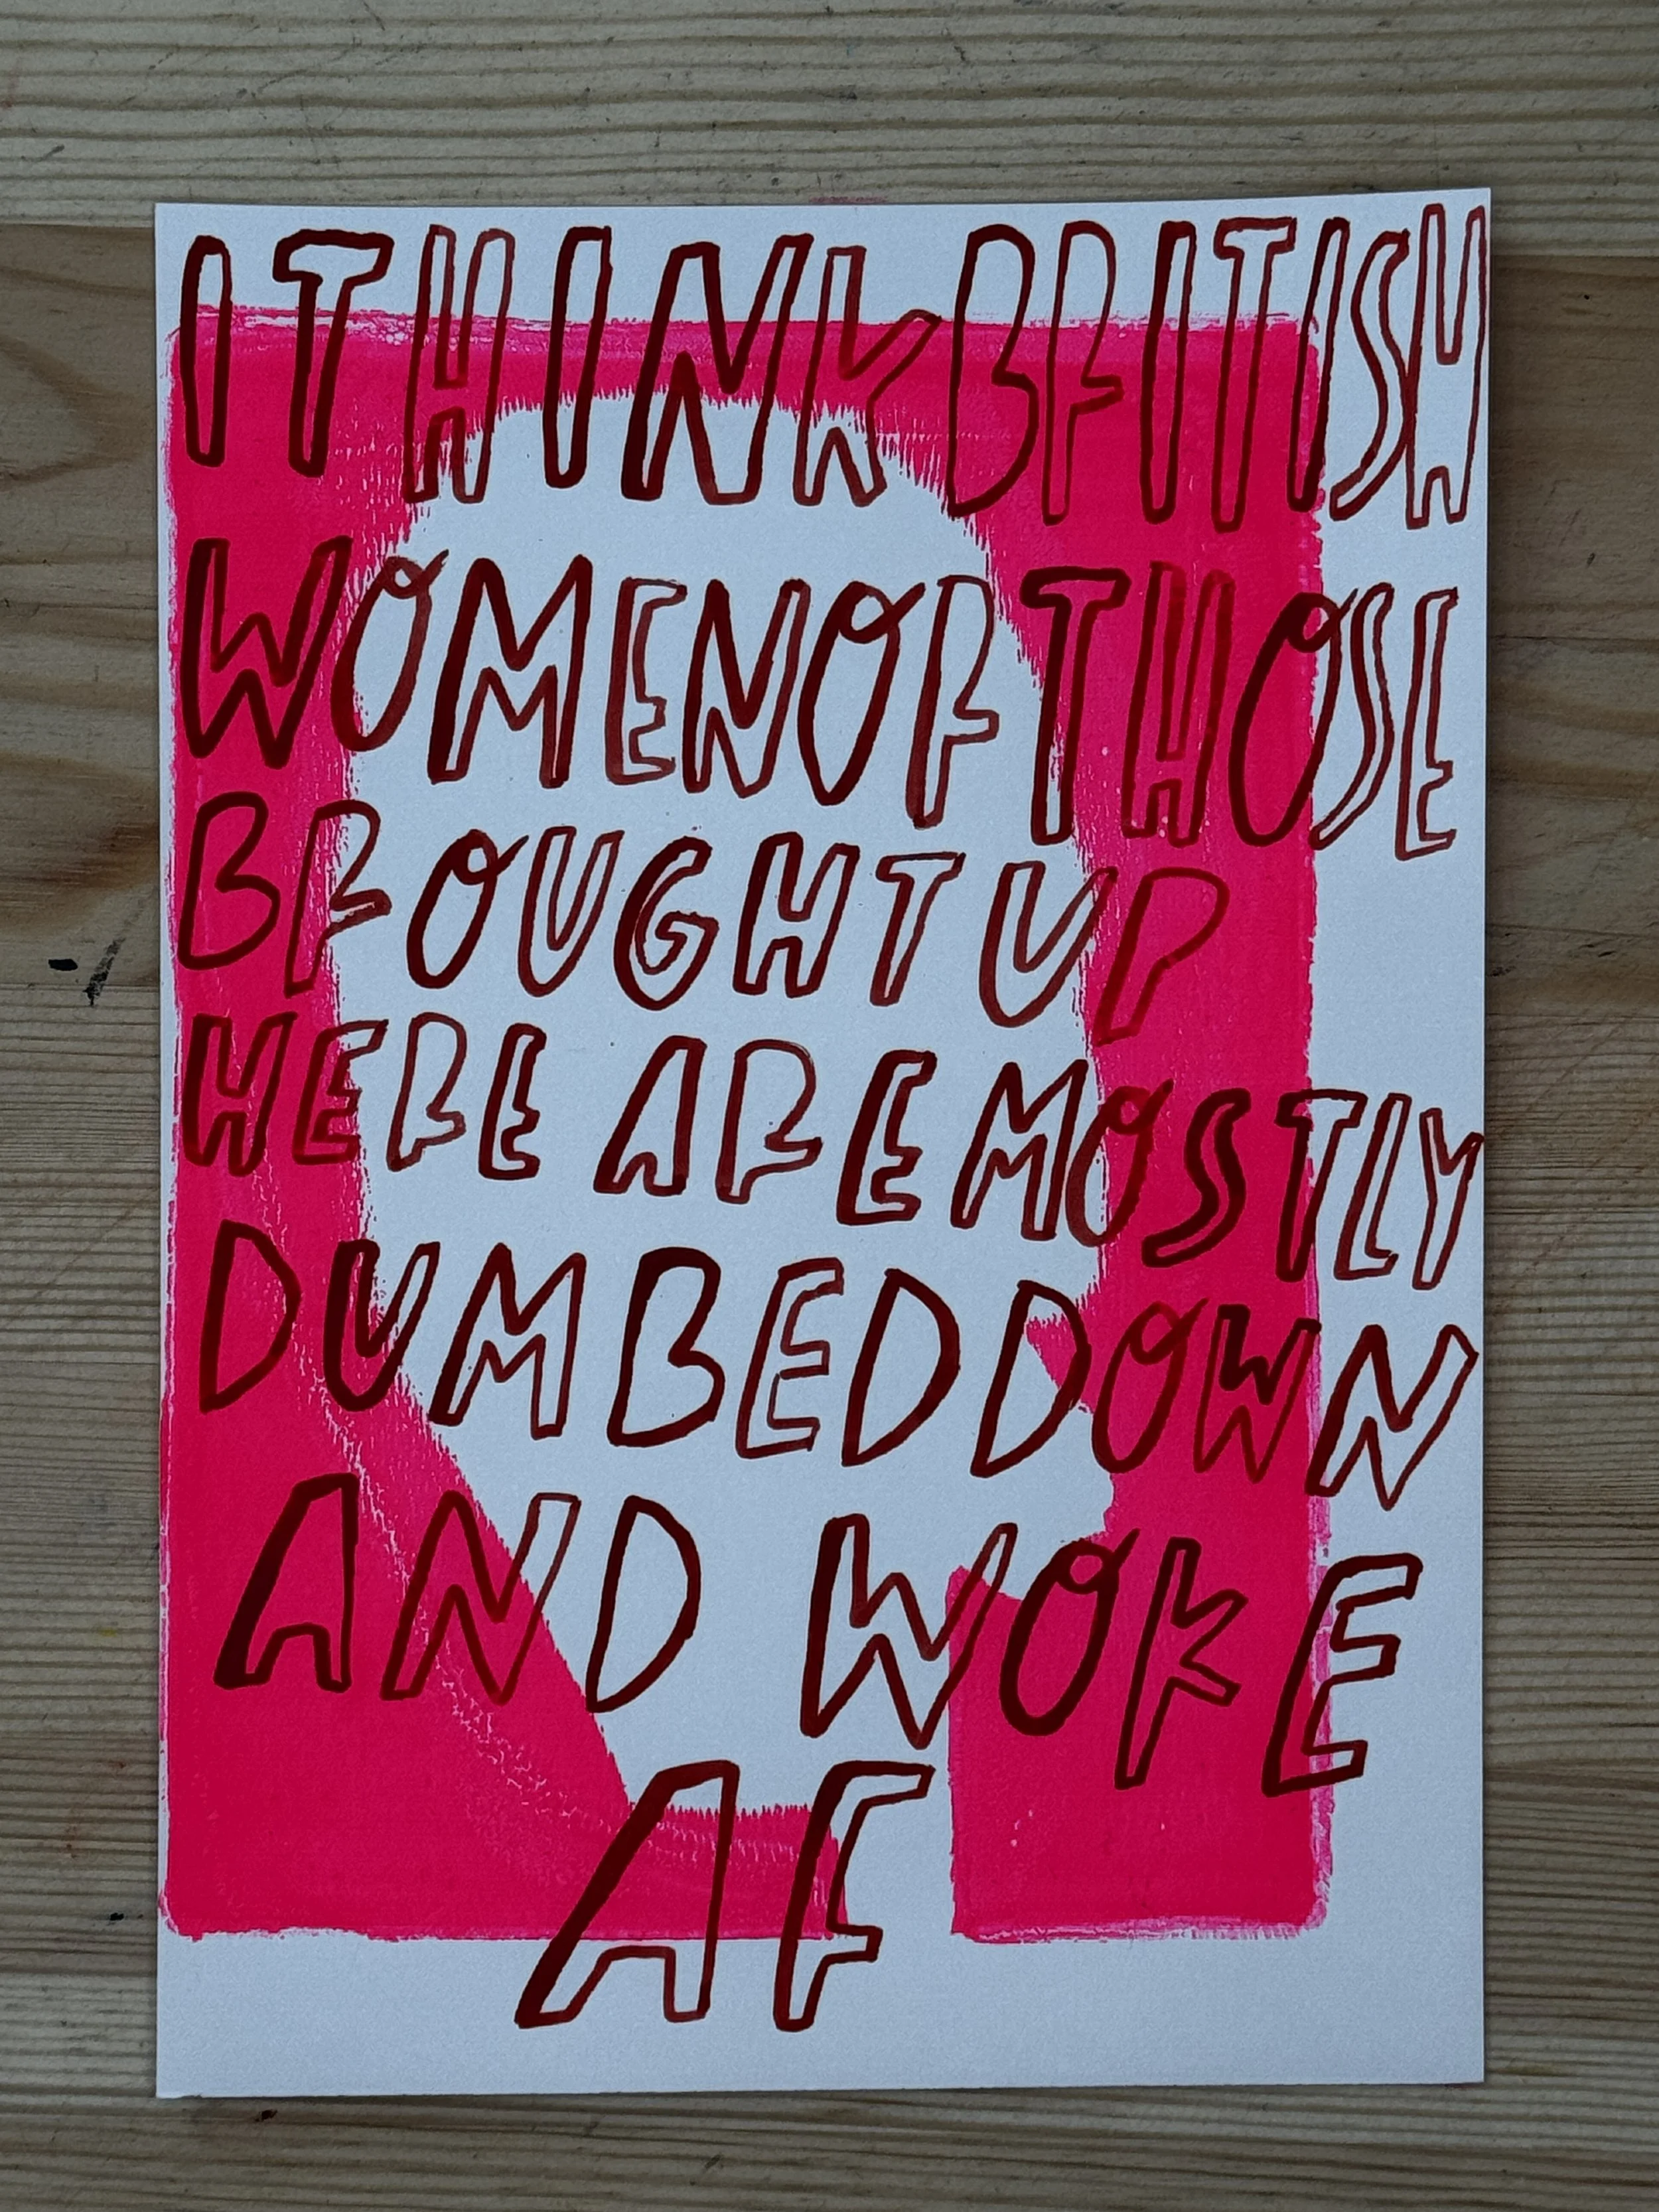 I THINK BRITISH
WOMEN OF THOSE
BROUGHT UP
HERE ARE MOSTLY
DUMBED DOWN
AND WOKE
AF